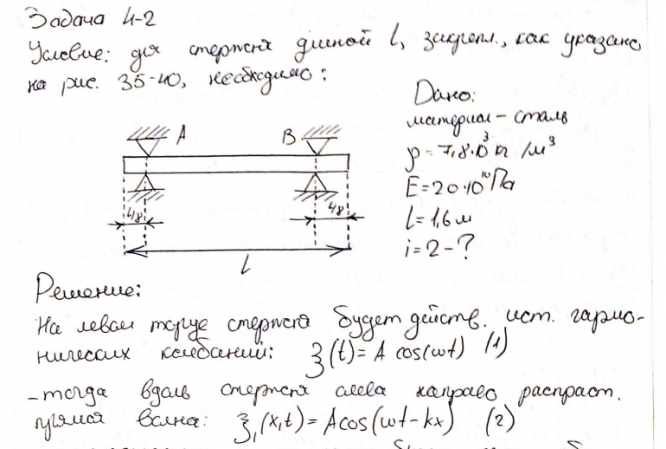 Задача 4-2
Условие: для стержня длиной l, закрепл., как указано
на рис. 35-40, необходимо:
Дано:
материал - сталь
ρ = 7,8·10³ кг/м³
E = 20·10¹⁰ Па
l = 1,6 м
i = 2 - ?
A
B
l/8
l/8
l
Решение:
На левом торце стержня будет действ. ист. гармо-
нических колебаний: ξ(t) = A cos(ωt) (1)
- тогда вдоль стержня слева направо распраст.
прямая волна: ξ₁(x,t) = A cos(ωt - kx) (2)